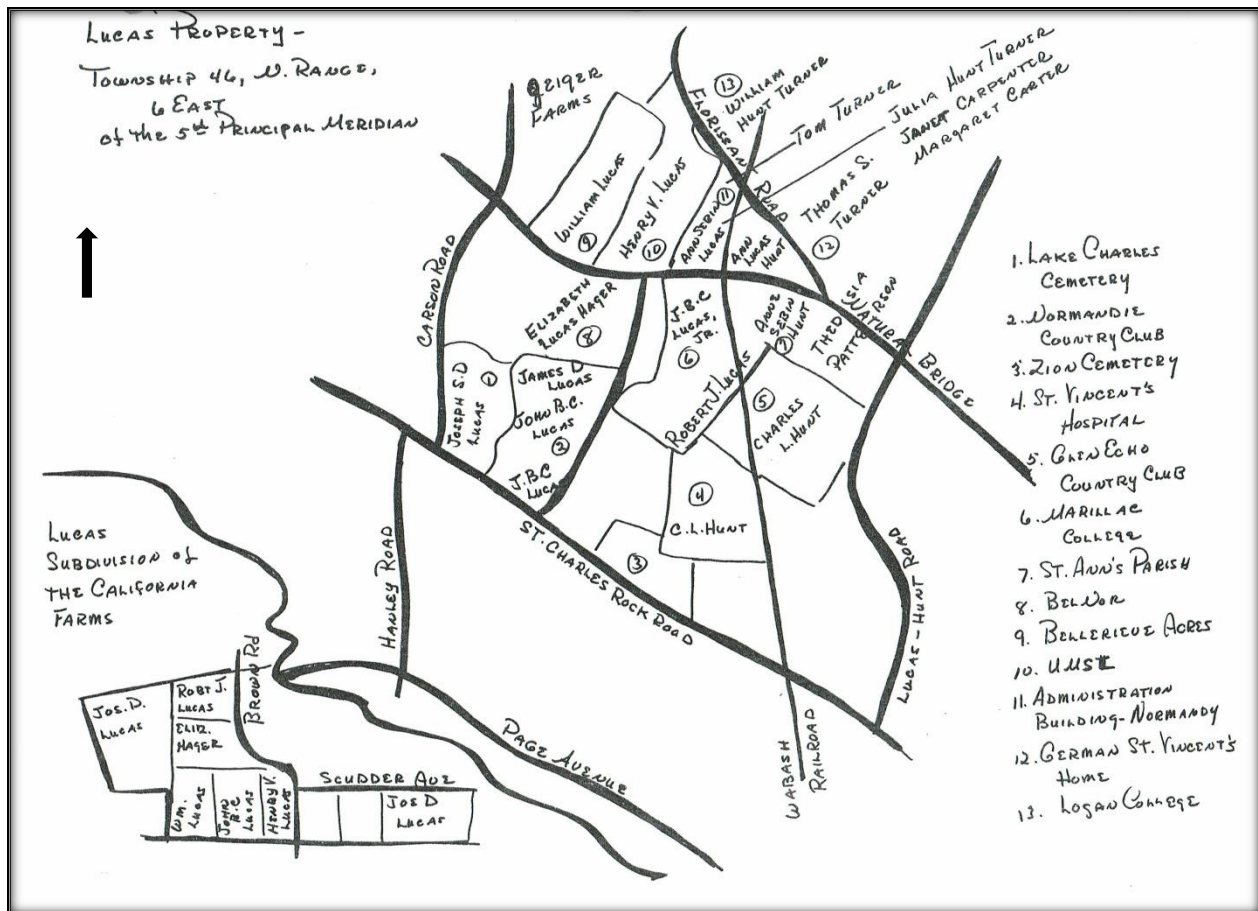 LUCAS PROPERTY -
TOWNSHIP 46, N. RANGE,
6 EAST
of the 5th PRINCIPAL MERIDIAN
GEIGER
FARMS
FLORISSANT ROAD
13
WILLIAM
HUNT TURNER
TOM TURNER
JULIA HUNT TURNER
JANET CARPENTER
MARGARET CARTER
THOMAS S.
TURNER
12
WILLIAM LUCAS
9
HENRY V. LUCAS
10
ANN SEBIN
LUCAS
11
ANN
LUCAS
HUNT
CARSON ROAD
ELIZABETH
LUCAS HAGER
8
J.B.C
LUCAS,
JR.
6
ANNE
SEBIN
HUNT
7
THEODOSIA
PATTERSON
NATURAL BRIDGE
JOSEPH S.D
LUCAS
1
JAMES D
LUCAS
JOHN B.C.
LUCAS
2
J.B.C
LUCAS
ROBERT J. LUCAS
5
CHARLES
L. HUNT
4
C.L. HUNT
3
ST. CHARLES ROCK ROAD
HANLEY ROAD
LUCAS - HUNT ROAD
WABASH
RAILROAD
PAGE AVENUE
LUCAS
SUBDIVISION of
THE CALIFORNIA
FARMS
BROWN Rd
JOS. D.
LUCAS
ROBT J.
LUCAS
ELIZ.
HAGER
WM.
LUCAS
JOHN
B.C
LUCAS
HENRY V.
LUCAS
SCUDDER AVE
JOS D
LUCAS
1. LAKE CHARLES
CEMETERY
2. NORMANDIE
COUNTRY CLUB
3. ZION CEMETERY
4. ST. VINCENT'S
HOSPITAL
5. GLEN ECHO
COUNTRY CLUB
6. MARILLAC
COLLEGE
7. ST. ANN'S PARISH
8. BELNOR
9. BELLERIEVE ACRES
10. UMSL
11. ADMINISTRATION
BUILDING - NORMANDY
12. GERMAN ST. VINCENT'S
HOME
13. LOGAN COLLEGE